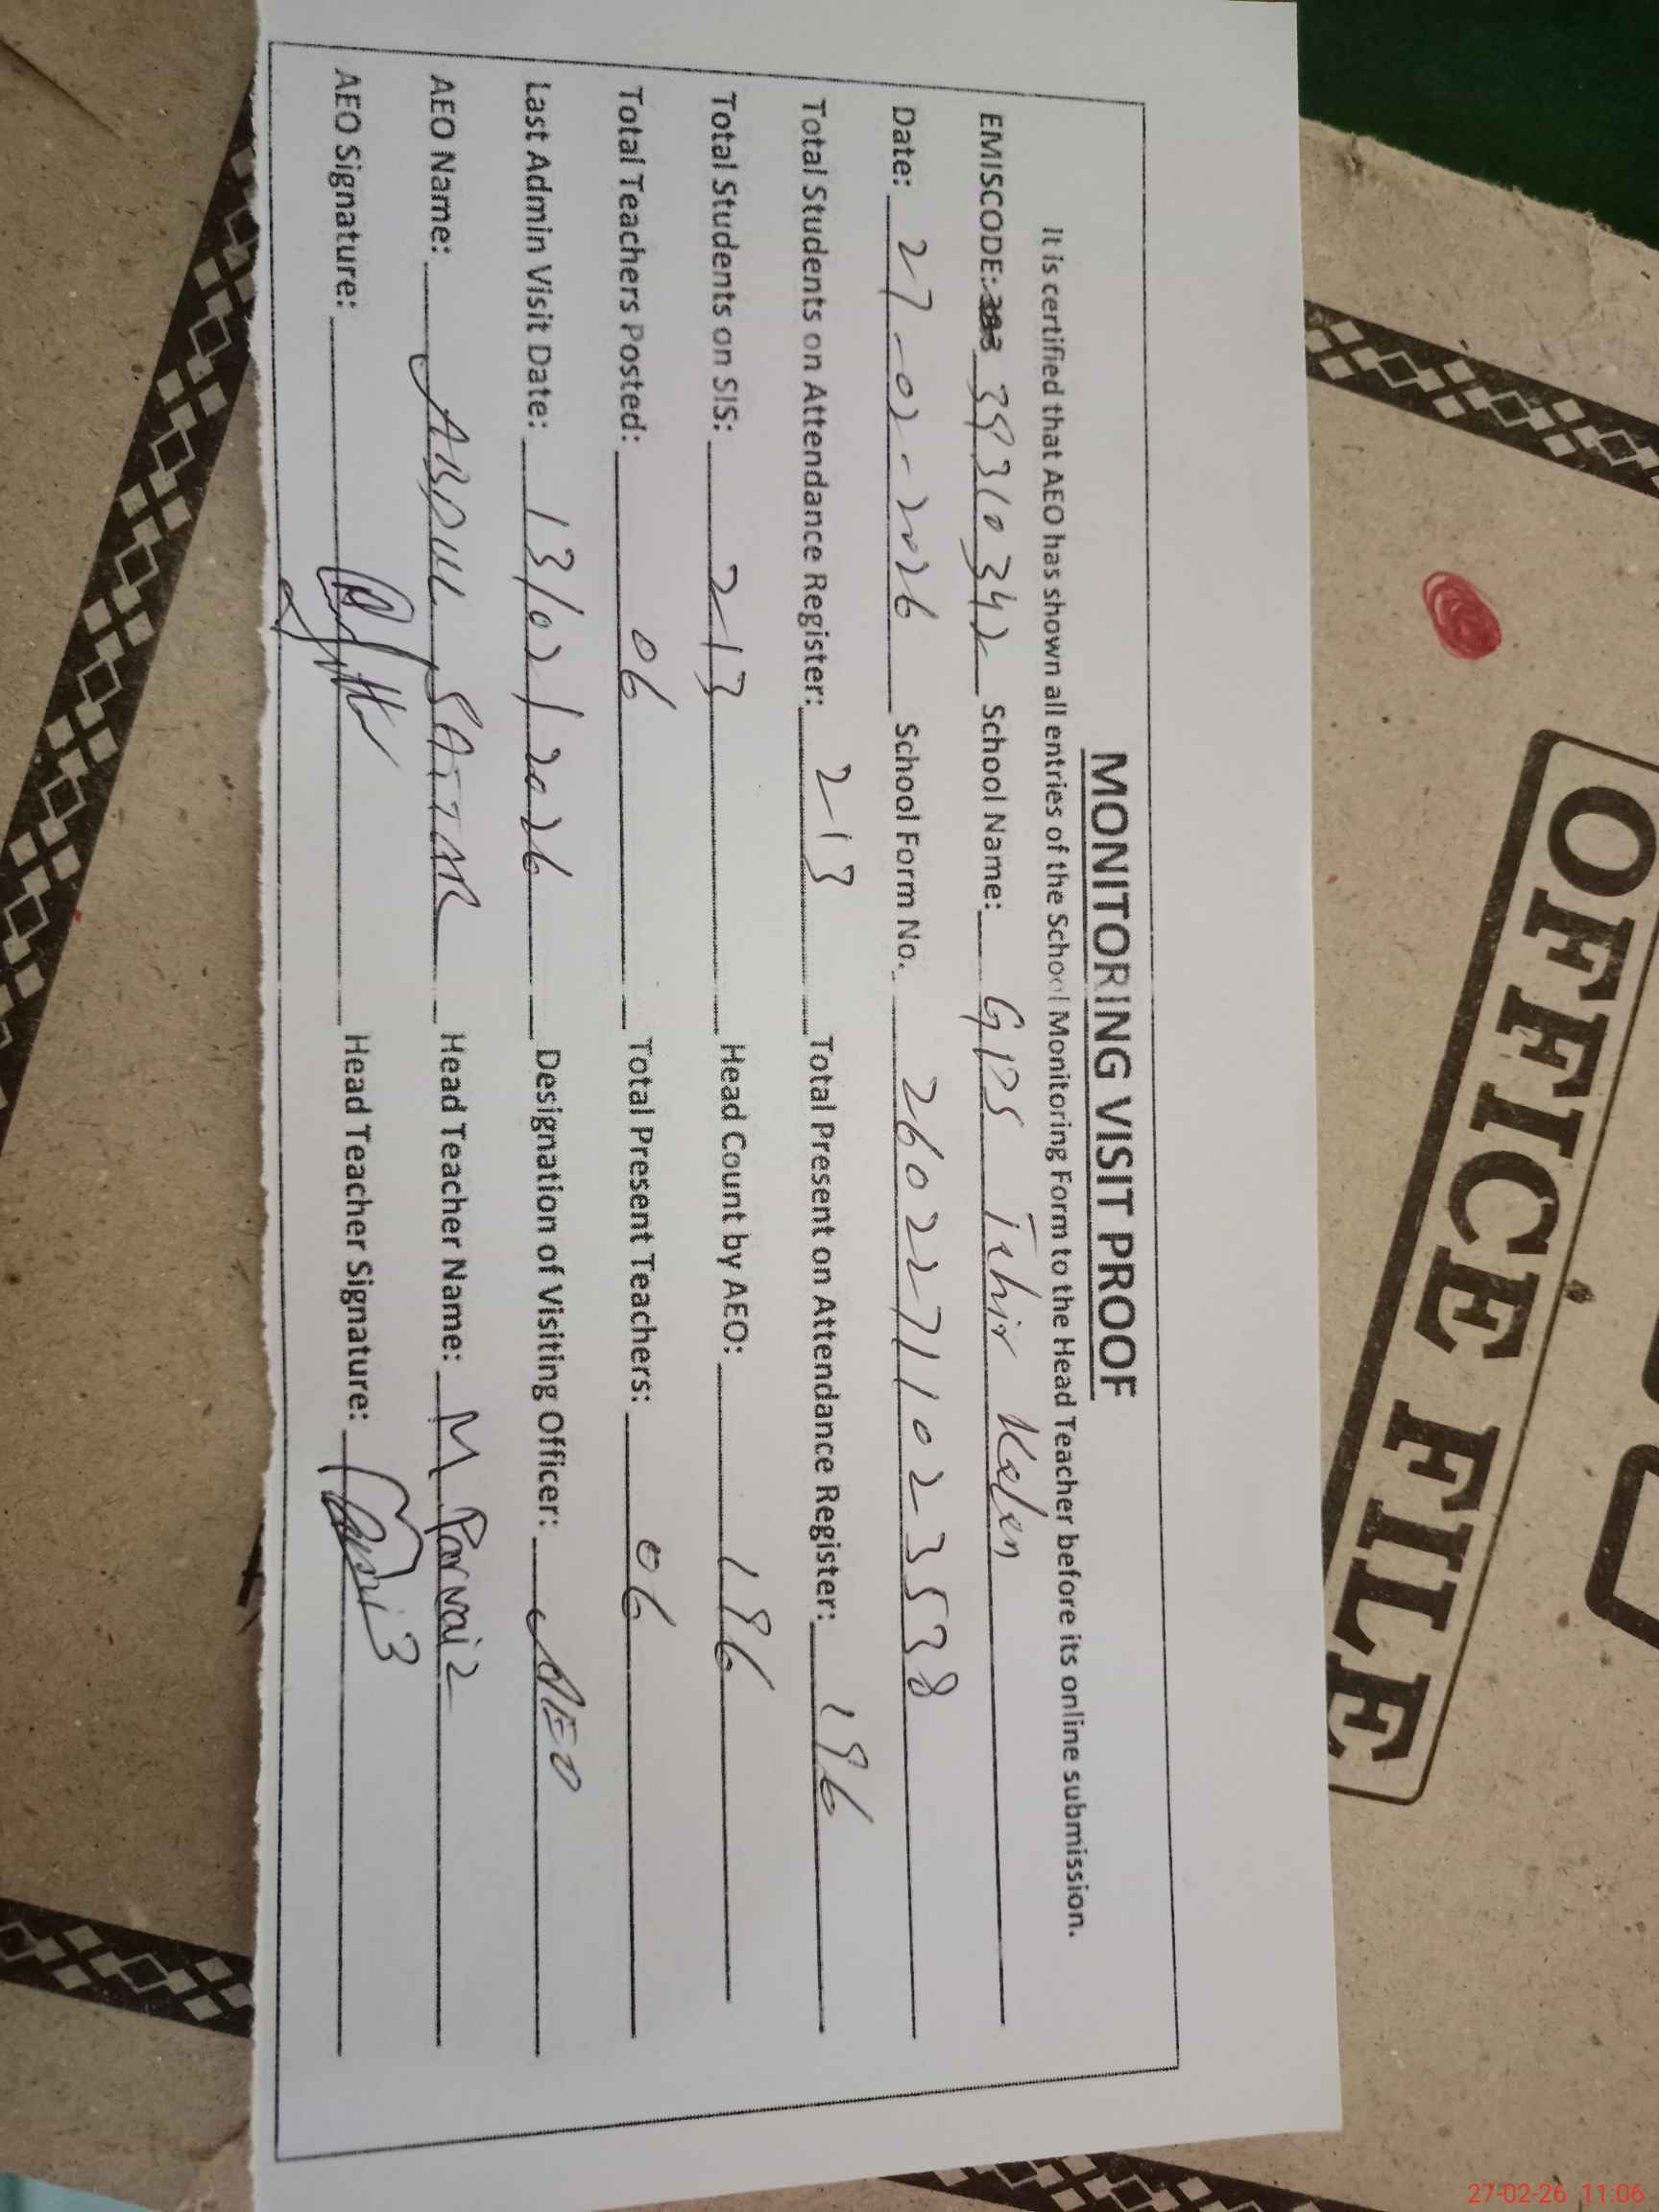 MONITORING VISIT PROOF
It is certified that AEO has shown all entries of the School Monitoring Form to the Head Teacher before its online submission.
EMISCODE: 39310342 School Name: GPS Tahir Kalan
Date: 27-02-2026 School Form No. 26022711023538
Total Students on Attendance Register: 213 Total Present on Attendance Register: 196
Total Students on SIS: 213 Head Count by AEO: 196
Total Teachers Posted: 06 Total Present Teachers: 06
Last Admin Visit Date: 13/02/2026 Designation of Visiting Officer: AEO
AEO Name: ABDUL SATTAR Head Teacher Name: M Parvaiz
AEO Signature: Head Teacher Signature:
OFFICE FILE
27-02-26 11:06